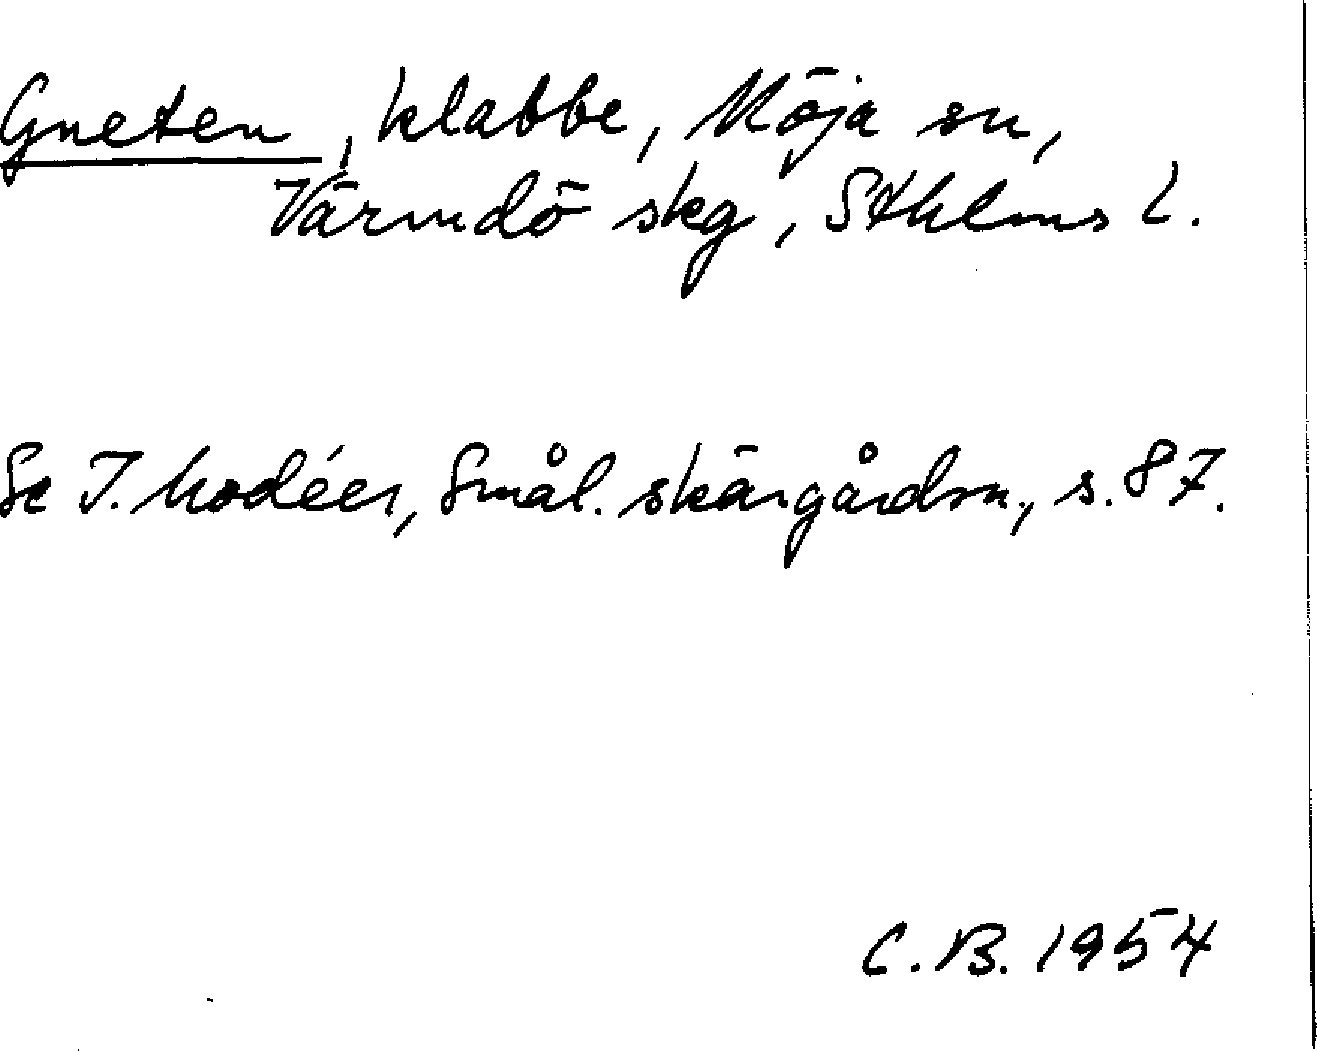 Gneten, klabbe, Möja sn,
Värmdö skg, Sthlms l.
Se I. Modéer, Smål. skärgårdsn., s. 87.
C. B. 1954